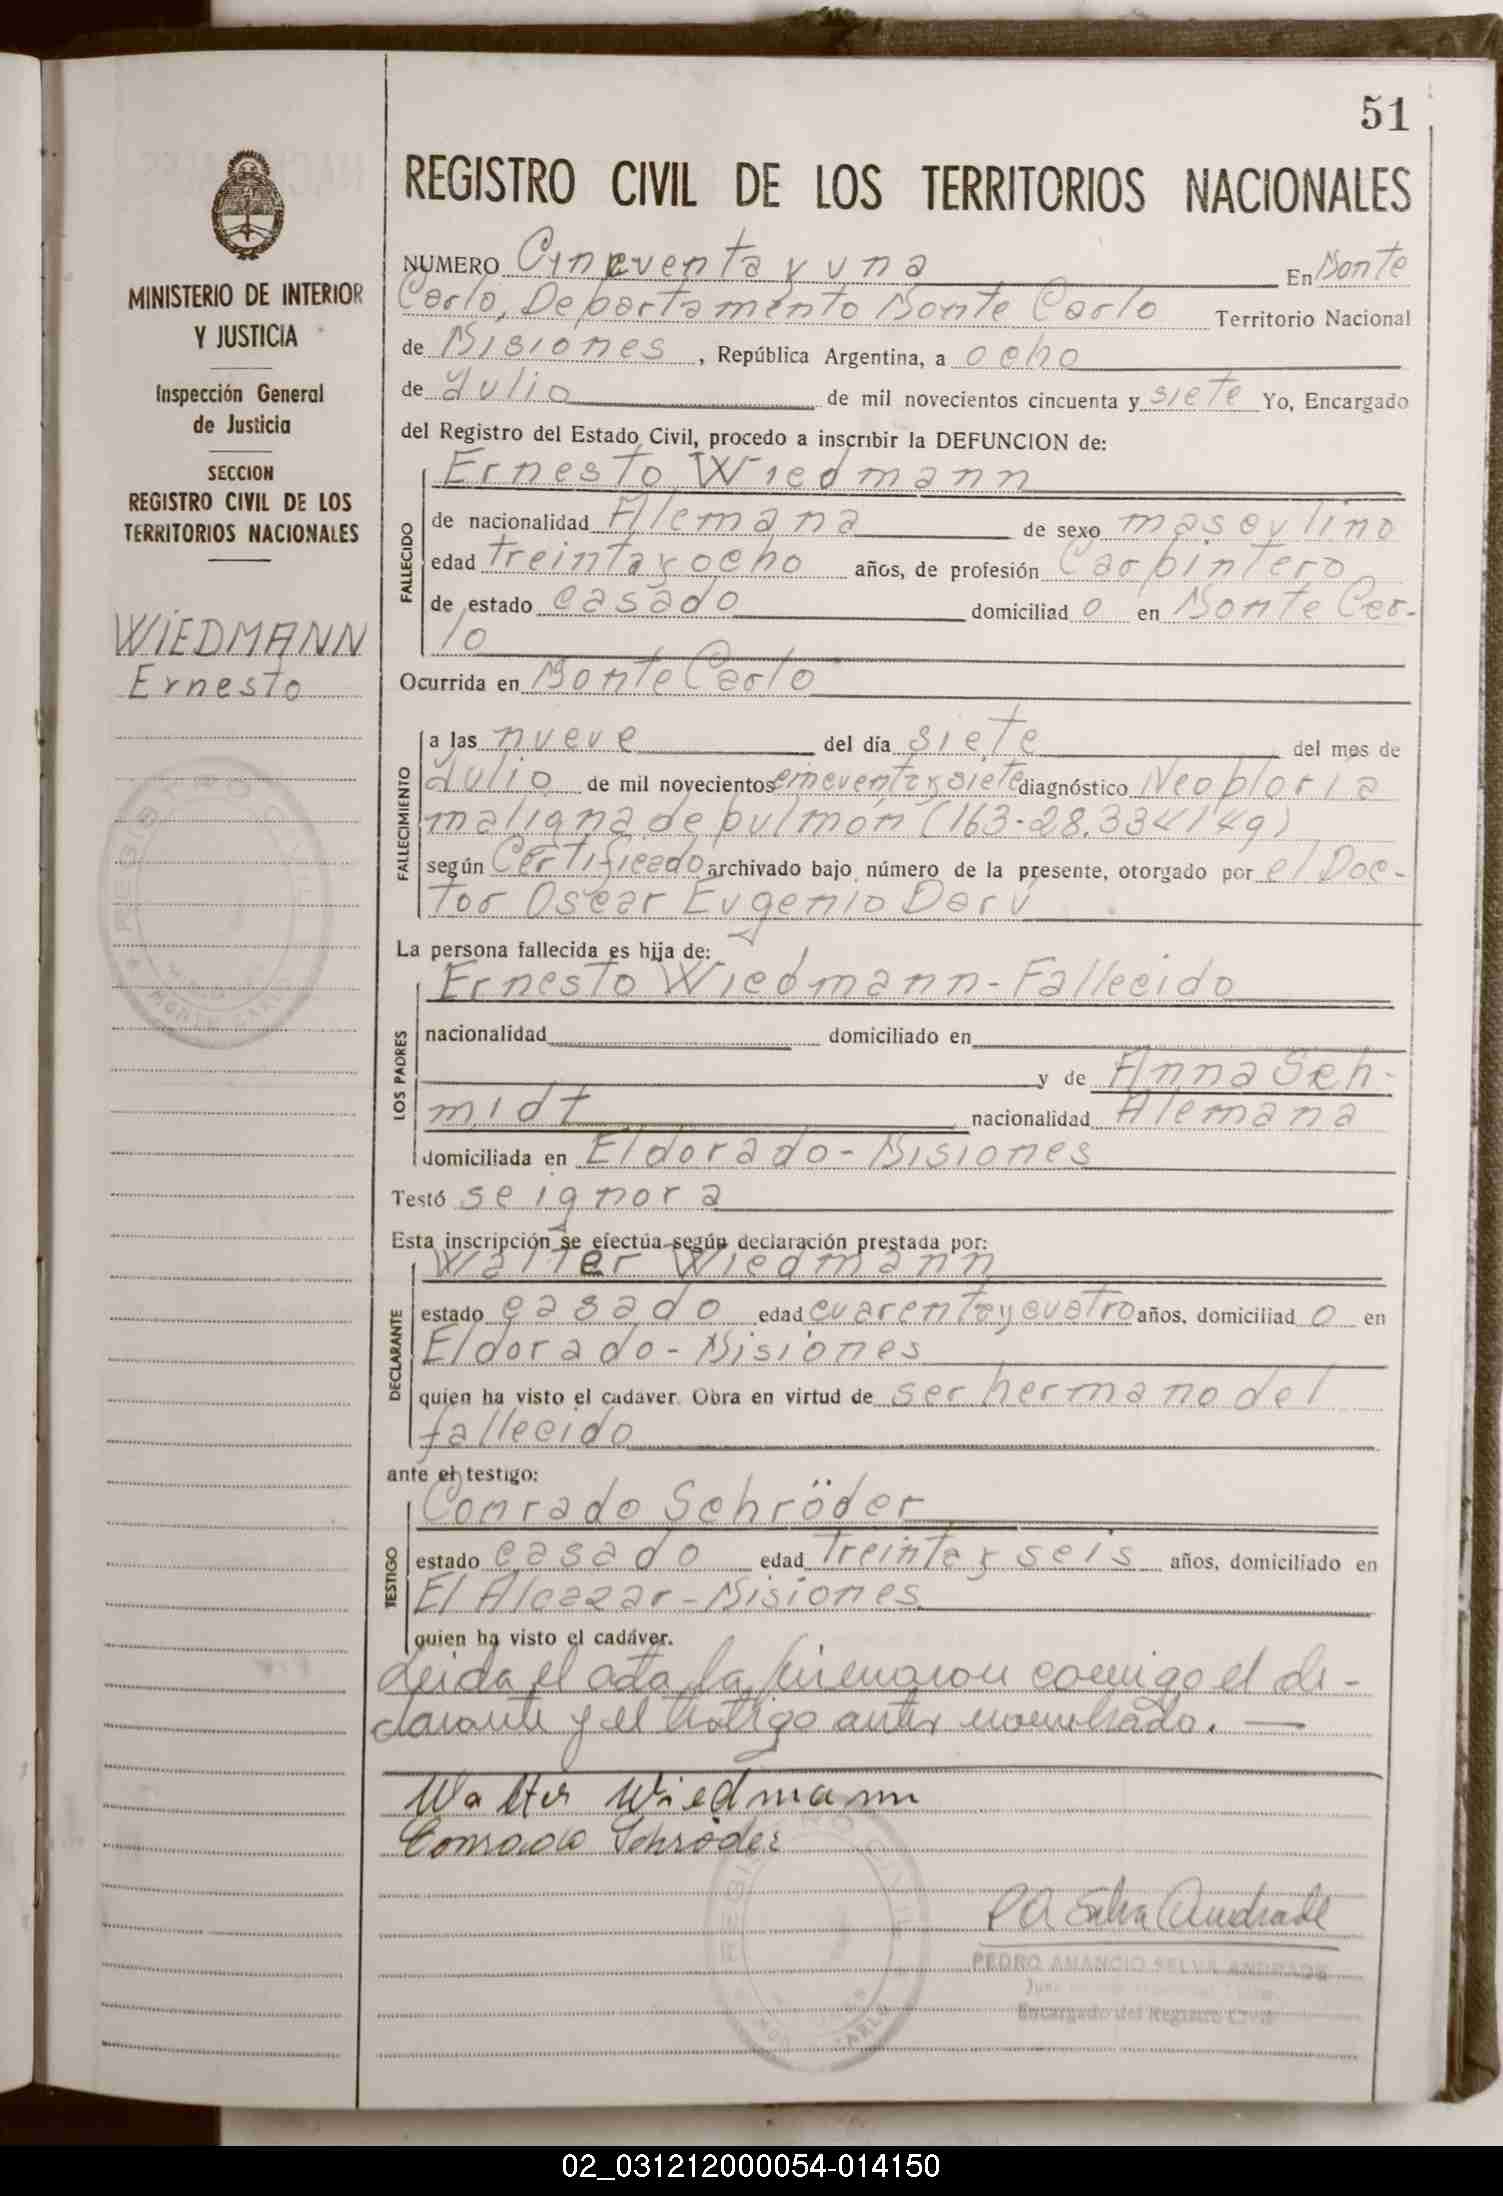 51
REGISTRO CIVIL DE LOS TERRITORIOS NACIONALES
MINISTERIO DE INTERIOR
Y JUSTICIA
Inspección General
de Justicia
SECCION
REGISTRO CIVIL DE LOS
TERRITORIOS NACIONALES
WIEDMANN
Ernesto
NUMERO Cincuenta y una En Monte
Carlo, Departamento Monte Carlo Territorio Nacional
de Misiones, República Argentina, a ocho
de Julio de mil novecientos cincuenta y siete Yo, Encargado
del Registro del Estado Civil, procedo a inscribir la DEFUNCION de:
Ernesto Wiedmann
FALLECIDO
de nacionalidad Alemana de sexo masculino
edad treinta y ocho años, de profesión Carpintero
de estado casado domiciliad o en Monte Car-
lo
Ocurrida en Monte Carlo
FALLECIMIENTO
a las nueve del día siete del mes de
Julio de mil novecientos cincuenta y siete diagnóstico
maligna de pulmón (163-28.334/49)
según Certificado archivado bajo número de la presente, otorgado por el Doc-
tor Oscar Eugenio Darú
La persona fallecida es hija de:
LOS PADRES
Ernesto Wiedmann - Fallecido
nacionalidad domiciliado en
y de Anna Sch-
midt nacionalidad Alemana
domiciliada en Eldorado - Misiones
Testó se ignora
Esta inscripción se efectúa según declaración prestada por:
DECLARANTE
Walter Wiedmann
estado casado edad cuarenta y cuatro años, domiciliad o en
Eldorado - Misiones
quien ha visto el cadáver. Obra en virtud de ser hermano del
fallecido
ante el testigo:
TESTIGO
Conrado Schröder
estado casado edad treinta y seis años, domiciliado en
El Alcazar - Misiones
quien ha visto el cadáver.
Leida el acta la firmaron conmigo el de-
clarante y el testigo antes nombrado. —
Walter Wiedmann
Conrado Schröder
P A Selva Andrade
PEDRO AMANCIO SELVA ANDRADE
Encargado del Registro Civil
02_031212000054-014150